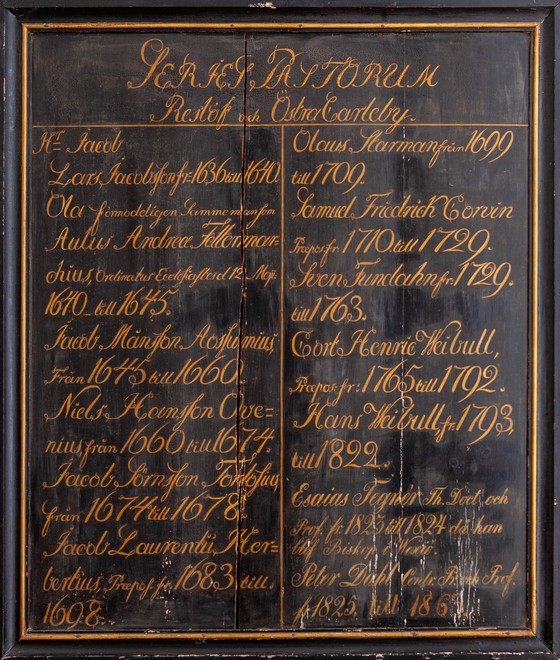 SERIES PASTORUM
Reslöf och Östra Carleby.
Hr. Jacob
Lars Jacobsson fr: 1636 till 1640.
Ola förmodeligen Samme man som
Aulus Andreæ Fellermar=
chius, Ordinatus Ecclesiastes d 12. Maji
1640 till 1645.
Jacob Månsson
Från 1645 till 1660.
Niels Hansson Ove=
nius, från 1660 till 1674.
Jacob Sörnsson
från 1674 till 1678.
Jacob Laurentii Her=
bertius, Præpos. fr: 1683 till
1698.
Olaus Starman från 1699
till 1709.
Samuel Friedrich Corvin
Præpos. fr: 1710 till 1729.
Sven Fundahn fr: 1729.
till 1763.
Cort Henric Weibull,
Præpos. fr: 1765 till 1792.
Hans Weibull fr: 1793,
till 1822.
Esaias Tegnér Th. Doct. och
Prof. fr. 1823 till 1824 då han
blef Biskop i Wexiö.
Peter Dahl Prof.
fr 1825. till